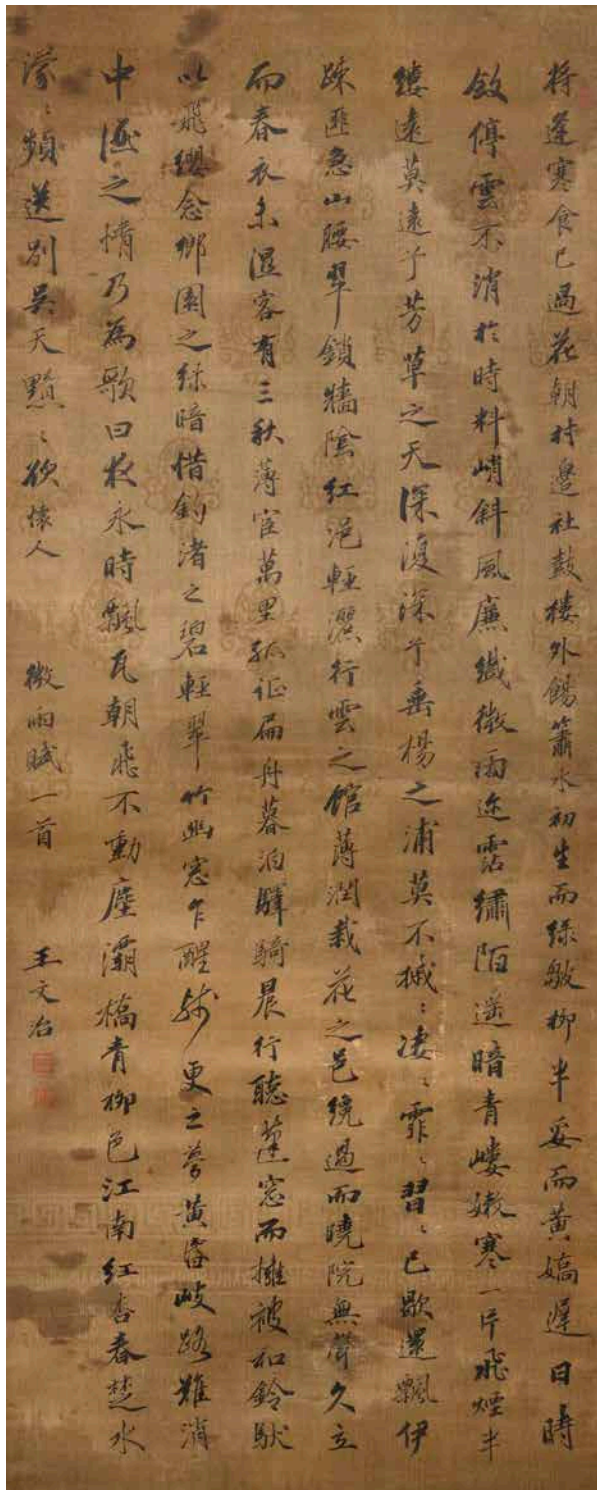 将逢寒食已過花朝村邊社鼓樓外餳簫水初生而緑皺柳半妥而黄嬌遲日時
斂停雲不消於時料峭斜風廉纖微雨近霑繡陌遥暗青嶁嫩寒一片飛煙半
縷遠莫遠于芳草之天深復深于垂楊之浦莫不摵〻凄〻霏〻習〻已歇還飄伊
疎匪急山腰翠鎖牆陰紅浥輕濕行雲之館薄潤栽花之邑繞過而曉院無聲久立
而春衣未濕客有三秋薄宦萬里孤征扁舟暮泊驛騎晨行聽蓬窓而擁被和鈴馱
以飛纓念鄉園之緑暗惜釣渚之碧輕翠竹幽窓乍醒殘更之夢黄沙岐路難消
中酒之情乃為歌曰枚永時飄瓦朝飛不動塵灞橋青柳色江南紅杏春楚水
濛〻頻送別吳天黯〻欲懐人
微雨賦一首
王文治